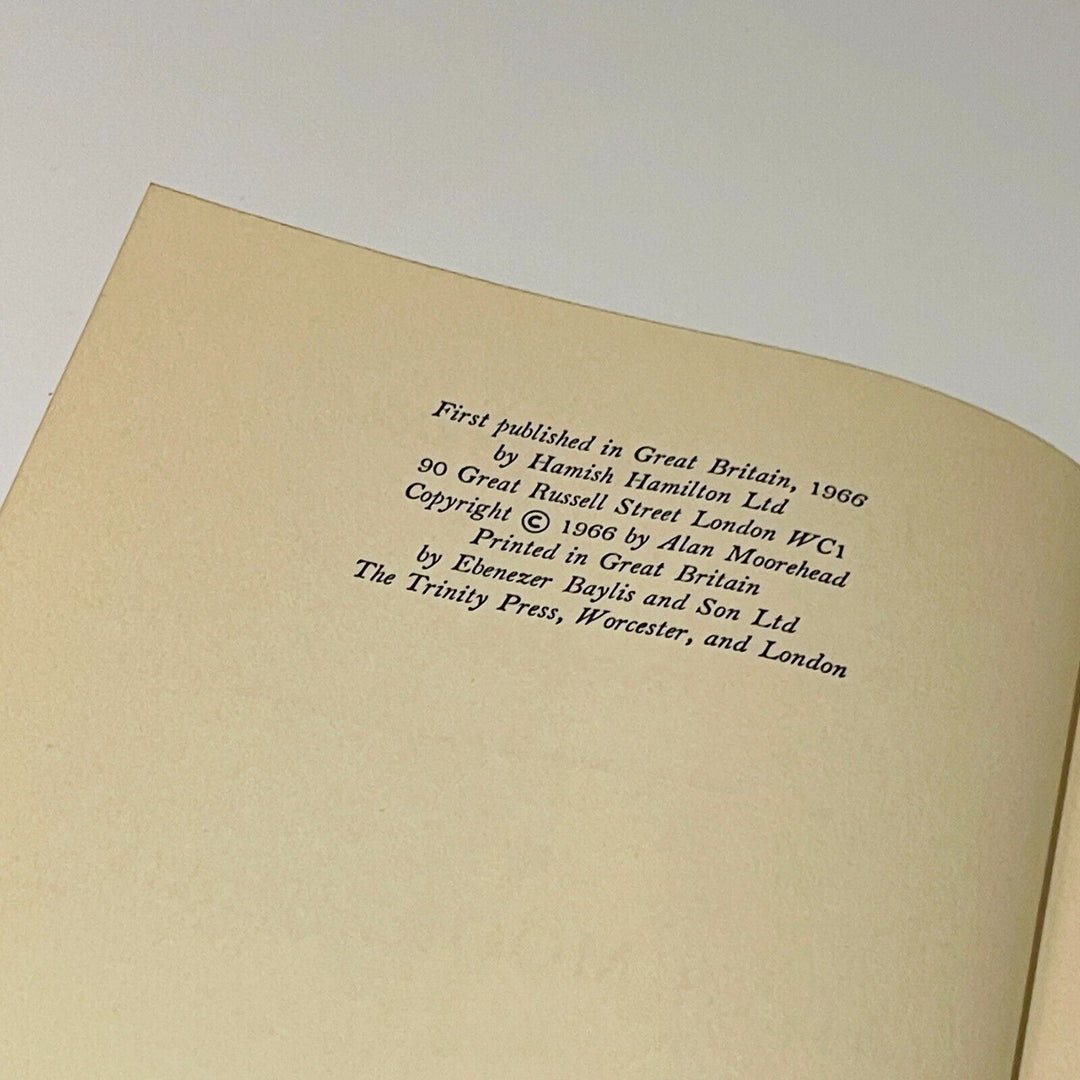 First published in Great Britain, 1966
by Hamish Hamilton Ltd
90 Great Russell Street London WC1
Copyright © 1966 by Alan Moorehead
Printed in Great Britain
by Ebenezer Baylis and Son Ltd
The Trinity Press, Worcester, and London